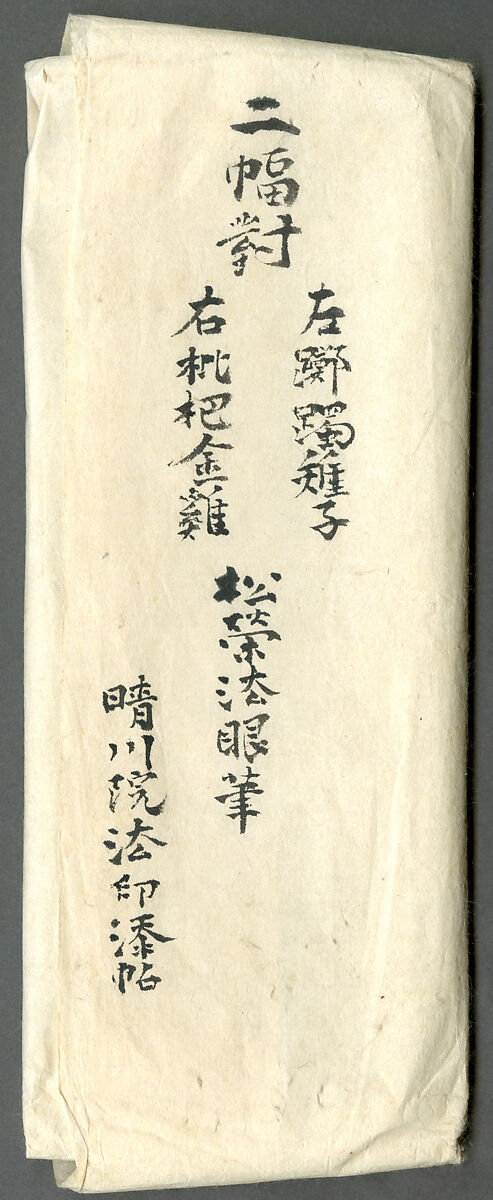 二幅對
左躑躅雉子
右枇杷金雞
松榮法眼筆
晴川院法印添帖